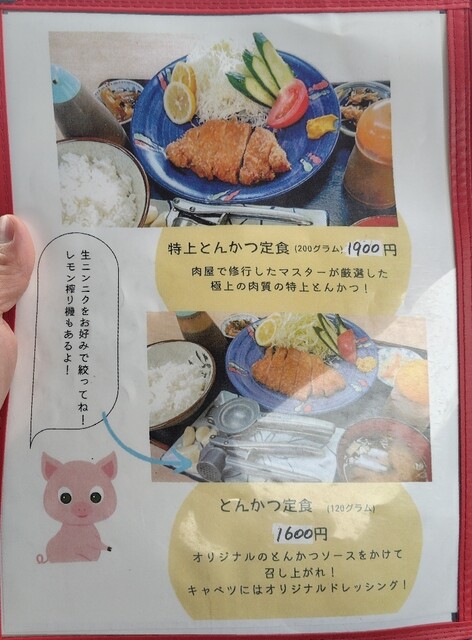 特上とんかつ定食 (200グラム) 1900円
肉屋で修行したマスターが厳選した
極上の肉質の特上とんかつ！
生ニンニクをお好みで絞ってね！
レモン搾り機もあるよ！
とんかつ定食 (120グラム)
1600円
オリジナルのとんかつソースをかけて
召し上がれ！
キャベツにはオリジナルドレッシング！